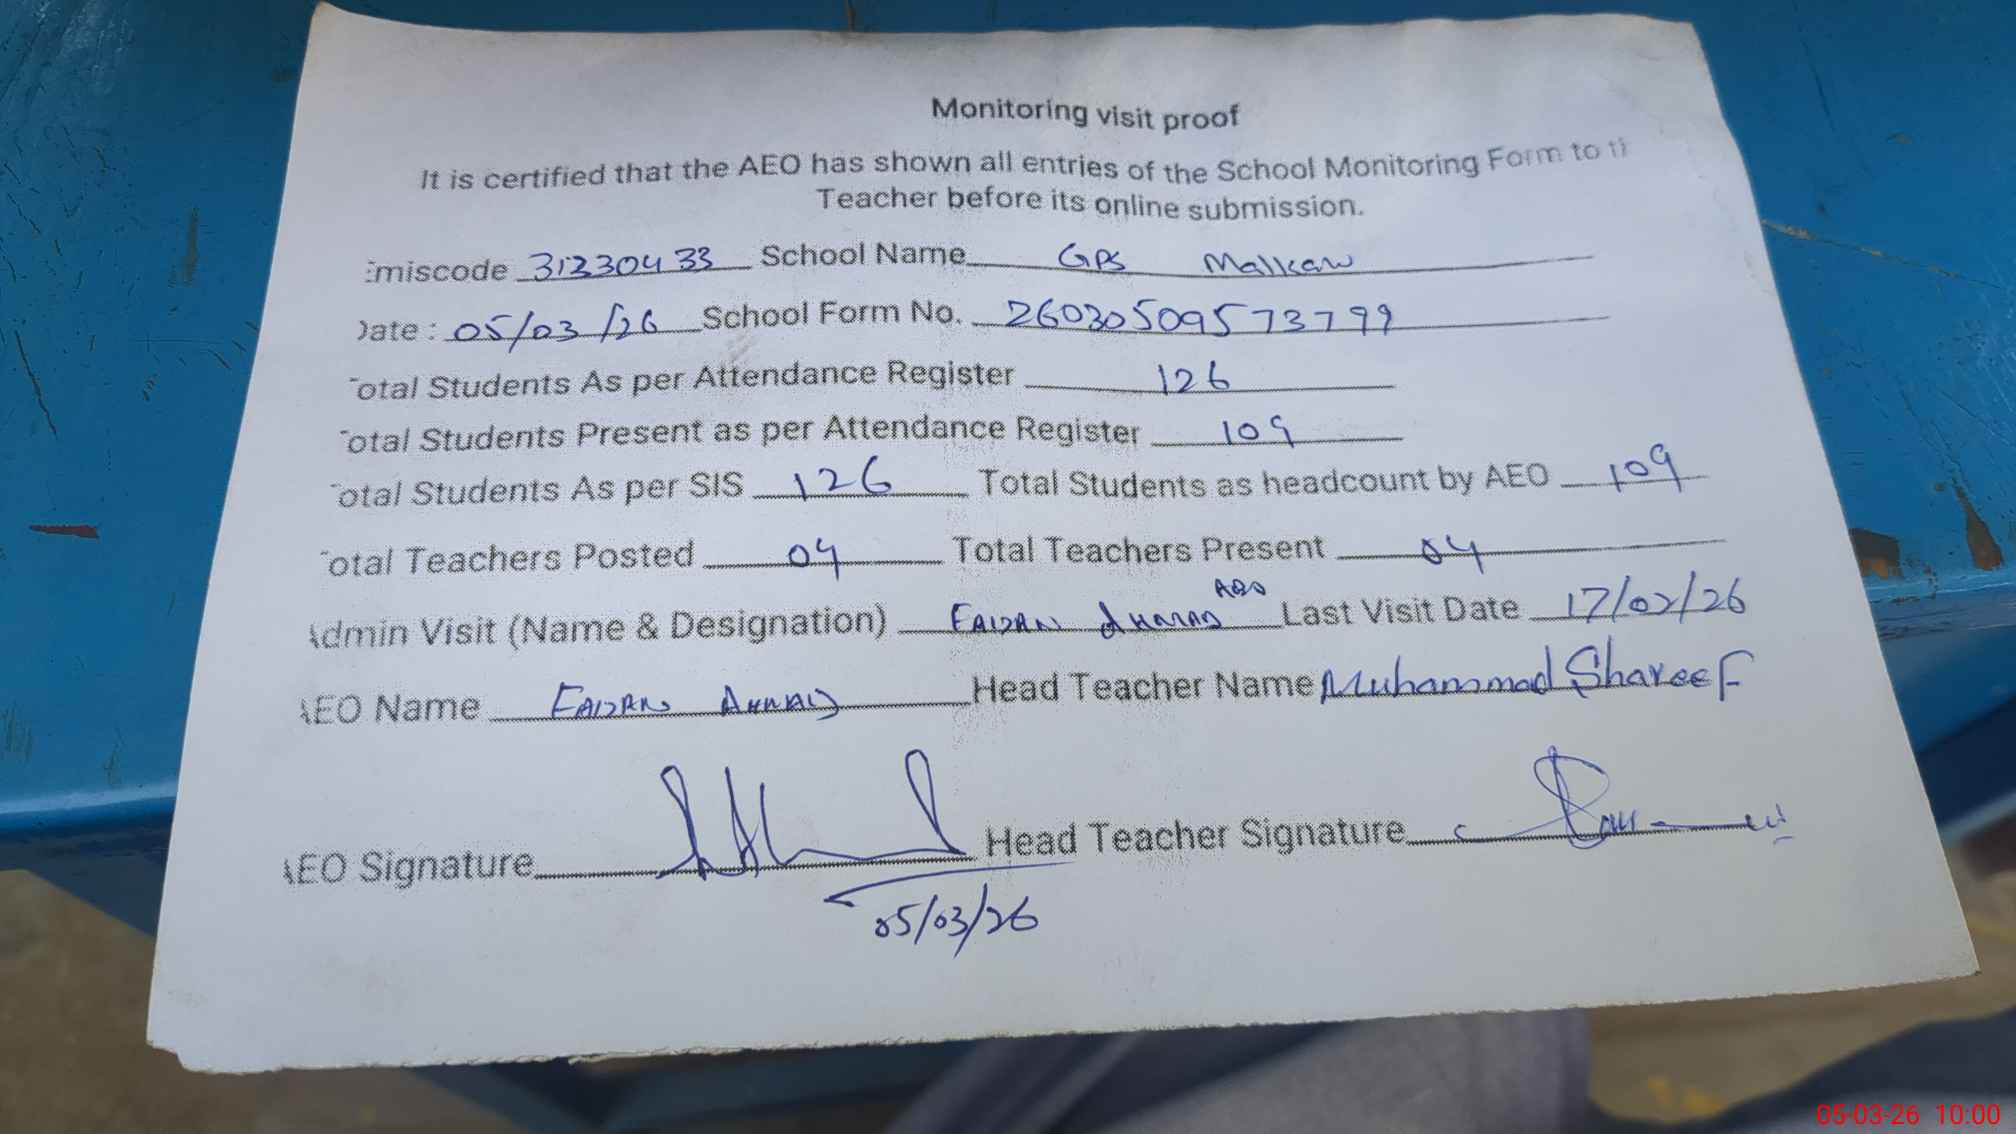 Monitoring visit proof
It is certified that the AEO has shown all entries of the School Monitoring Form to
Teacher before its online submission.
Emiscode 31230433 School Name GPS Malkan
Date : 05/03/26 School Form No. 26030509573799
Total Students As per Attendance Register 126
Total Students Present as per Attendance Register 109
Total Students As per SIS 126 Total Students as headcount by AEO 109
Total Teachers Posted 04 Total Teachers Present 04
Admin Visit (Name & Designation) FAIZAN AHMAD AEO Last Visit Date 17/02/26
AEO Name FAIZAN AHMAD Head Teacher Name Muhammad Shareef
AEO Signature Head Teacher Signature
05/03/26
05-03-26 10:00